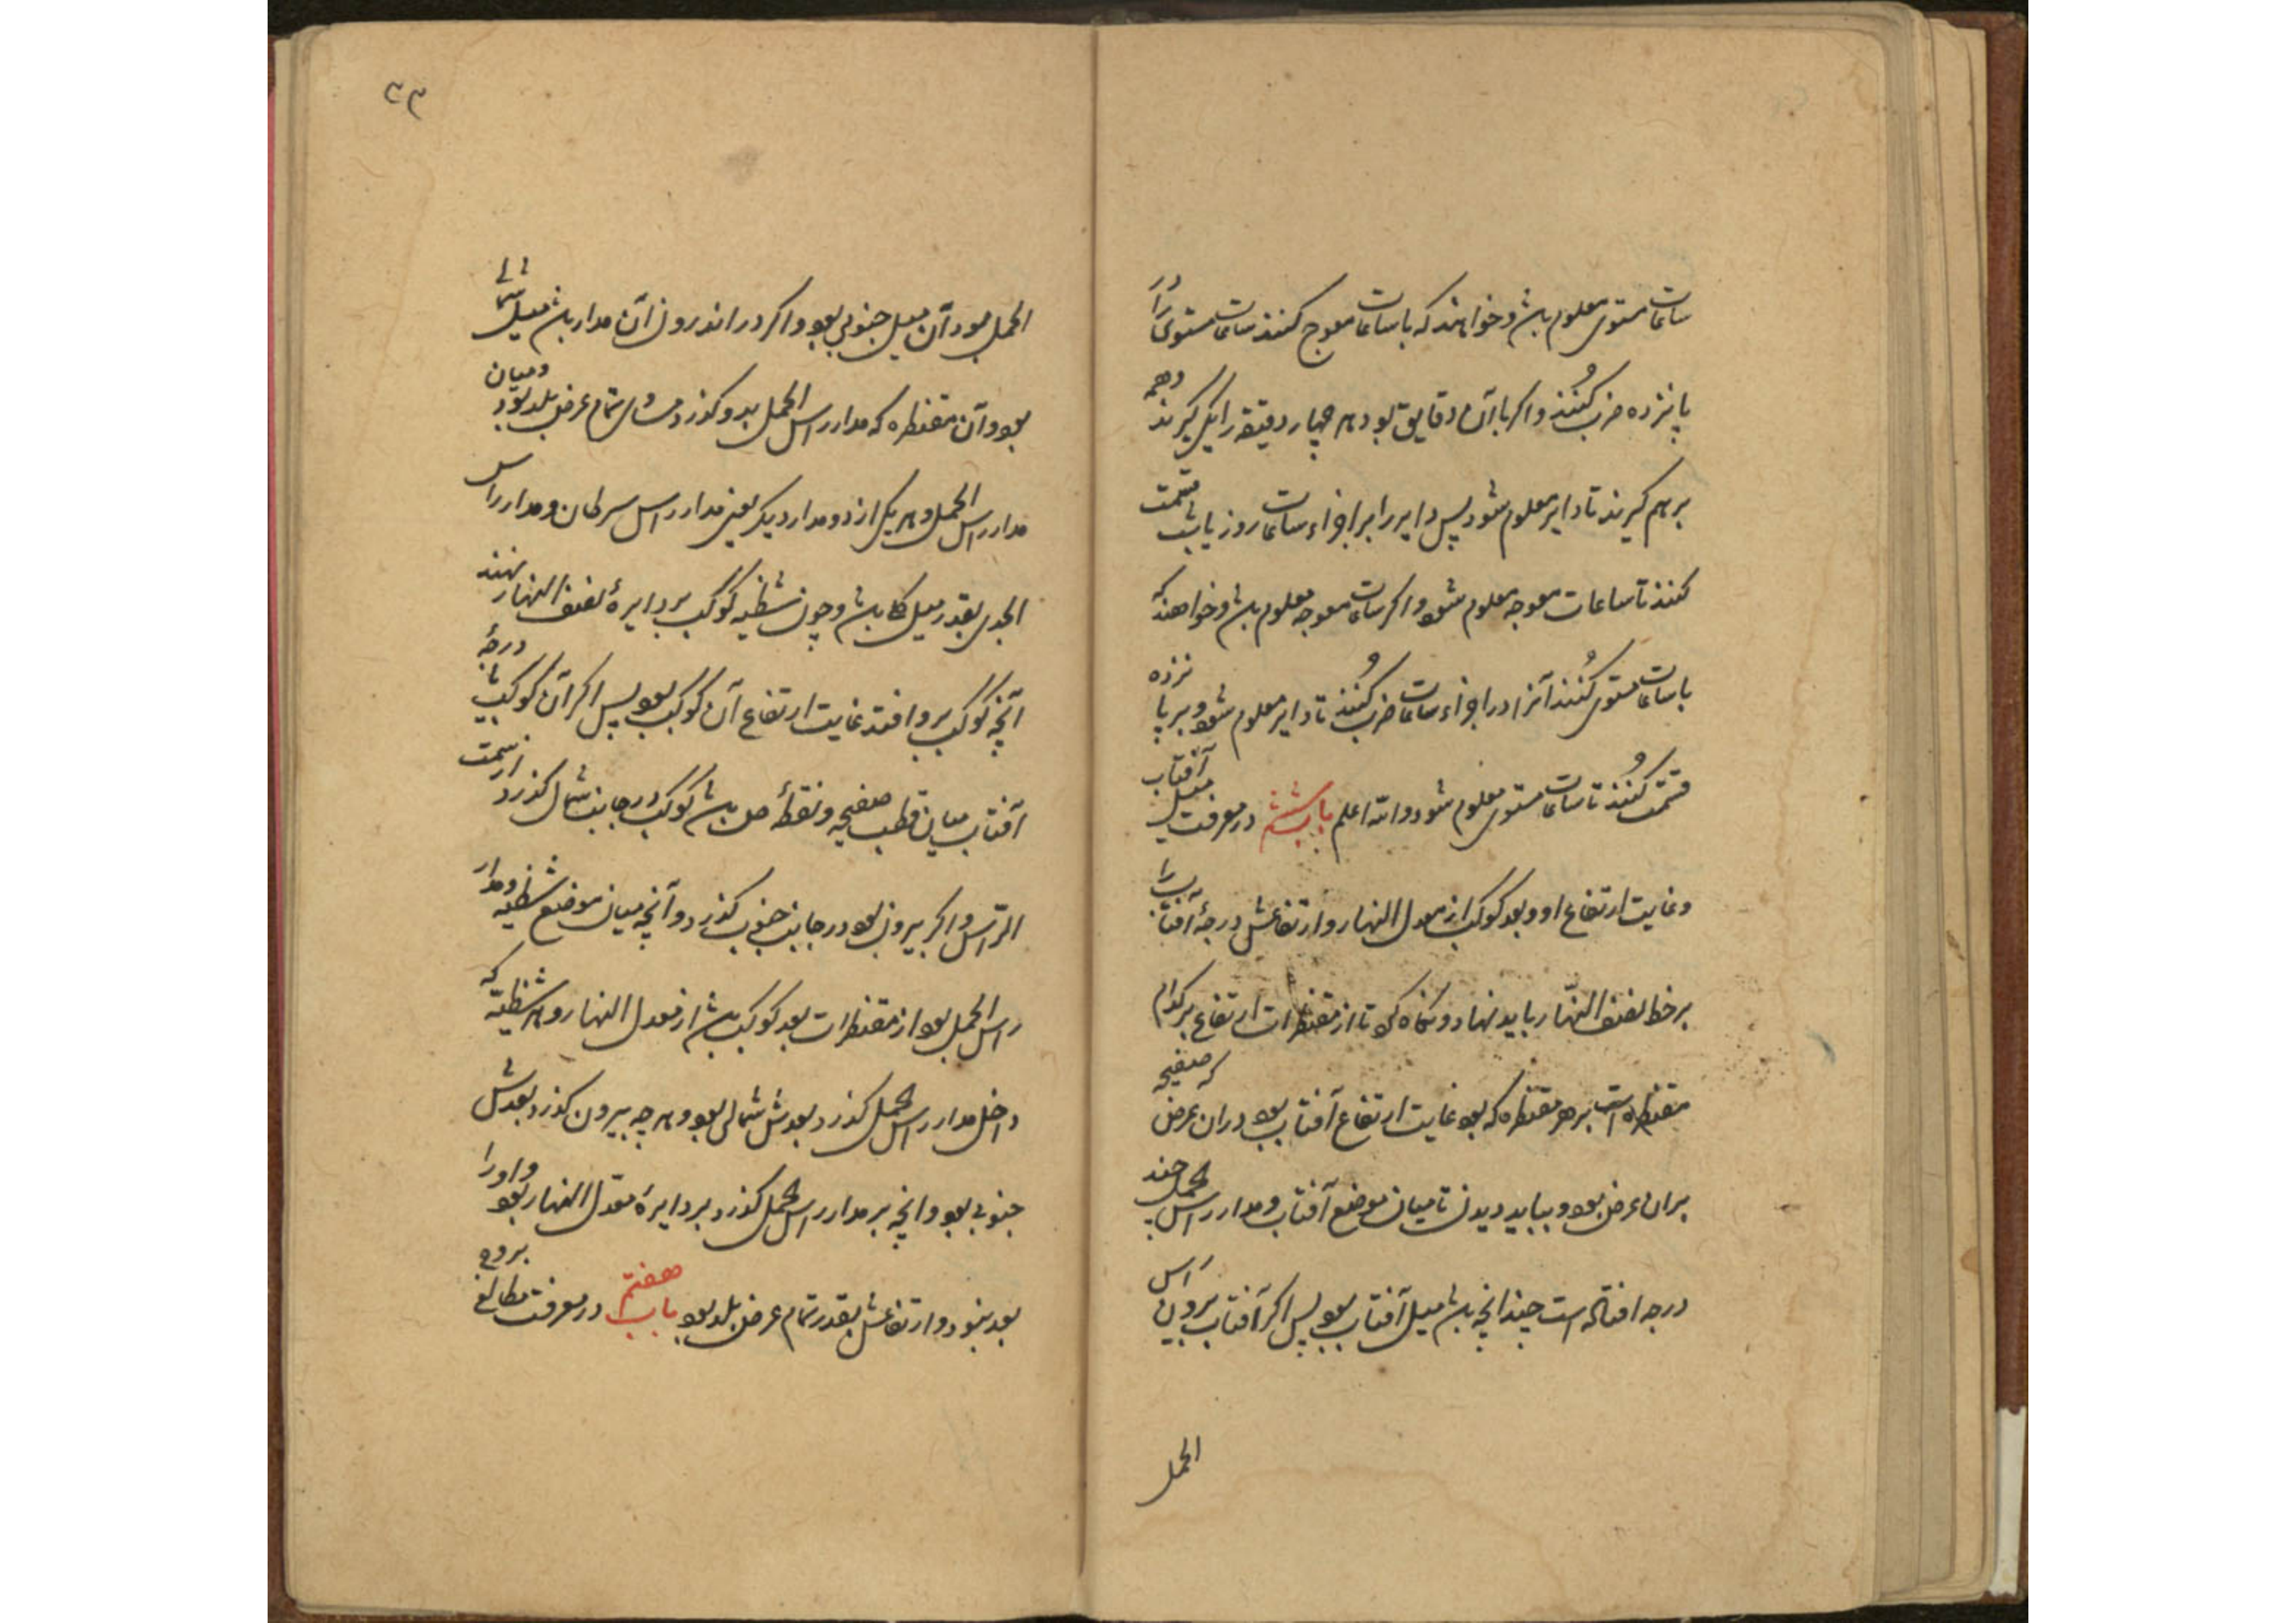 ساعات مستوی معلوم باشد و خواهند که با ساعات معوج کنند ساعات مستوی را در
پانزده ضرب کنند و اکر با آن دقایق بود هر چهار دقیقه را یکی کیرند و همه
بر هم کیرند تا دایر معلوم شود پس دایر را بر اجزاء ساعات روز یا شب قسمت
کنند تا ساعات معوجه معلوم شود و اکر ساعات معوجه معلوم باشد و خواهند که
با ساعات مستوی کنند آنرا در اجزاء ساعات ضرب کنند تا دایر معلوم شود و بر پانزده
قسمت کنند تا ساعات مستوی معلوم شود والله اعلم باب ششم در معرفت میل آفتاب
و غایت ارتفاع او و بعد کوکب از معدل النهار و ارتفاعش درجهٔ آفتاب را
بر خط نصف النهار باید نهاد و نکاه کرد تا از مقنطرات ارتفاع بر کدام
مقنطره است بر هر مقنطره که بود غایت ارتفاع آفتاب بود دران عرض که صفیحه
بران عرض بود و بباید دیدن تا میان موضع آفتاب و مدار راس الحمل چند
درجه افتاده است چندانچه باشد میل آفتاب بود پس اکر آفتاب بیرون راس
الحمل
۳۳
الحمل بود آن میل جنوبی بود و اکر در اندرون آن مدار باشد میل شمالی
بود و آن مقنطره که مدار راس الحمل بدو کذرد مساوی تمام عرض بلد بود و میان
مدار راس الحمل و هر یکی از دو مدار دیکر یعنی مدار راس سرطان و مدار راس
الجدی بقدر میل کلی باشد و چون شظیه کوکب بر دایرهٔ نصف النهار نهند
آنچه کوکب برو افتد غایت ارتفاع آن کوکب بود پس اکر آن کوکب یا درجهٔ
آفتاب میان قطب صفیحه و نقطهٔ ص باشد کوکب در جانب شمال کذرد از سمت
الراس و اکر بیرون بود در جانب جنوب کذرد و آنچه میان موضع شظیه و مدار
راس الحمل بود از مقنطرات بعد کوکب باشد از معدل النهار و هر شظیه که
داخل مدار راس الحمل کذرد بعدش شمالی بود و هر چه بیرون کذرد بعدش
جنوبی بود و انچه بر مدار راس الحمل کذرد بر دایرهٔ معدل النهار بود و او را
بعد نبود و ارتفاعش بقدر تمام عرض بلد بود باب هفتم در معرفت مطالع بروج